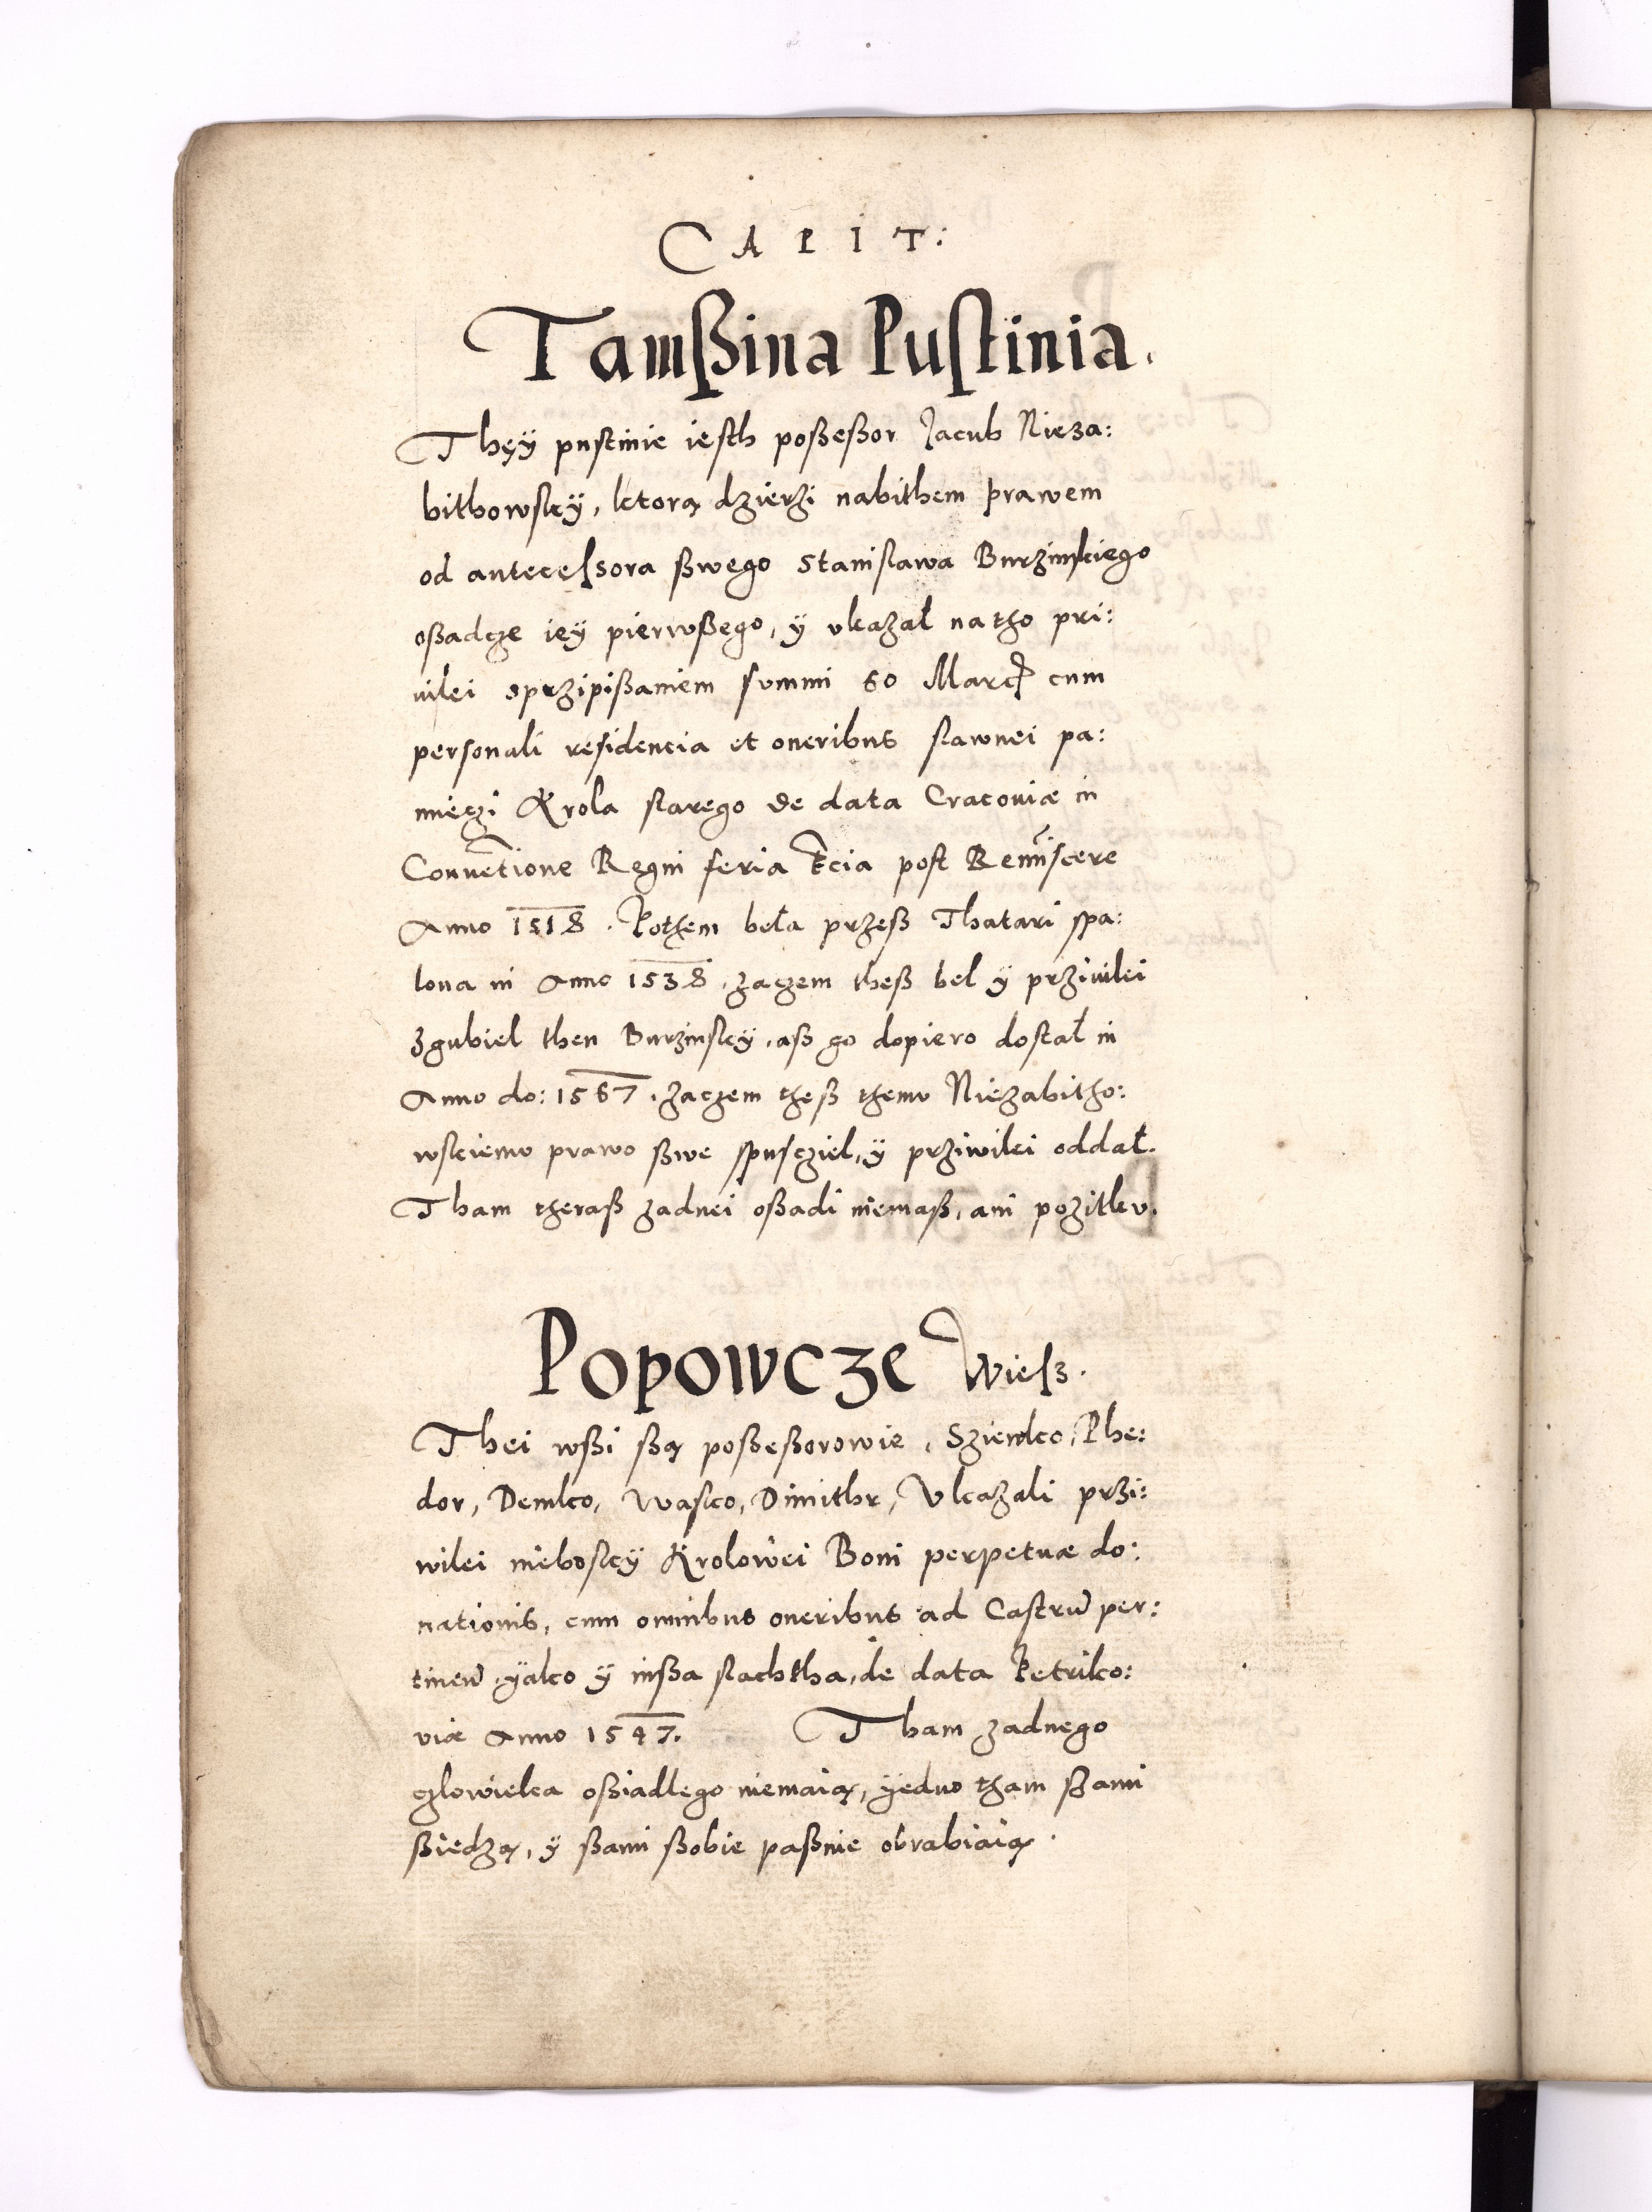 CAPIT:
Tamßina Pustinia.
Thęÿ pustinie iesth poßeßor Jacub Nieza:
bithowskÿ, ktorą dzierżi nabithem prawem
od antecessora ßwego Stanislawa Burzinskiego
oßadcze ieÿ pierwßego, ÿ vkazał na tho pri:
uilei sprzipißaniem summi 60 Marcę cum
personali residencia et oneribus slawnei pa:
mięczi Krola starego de data Cracouiæ in
Conuētione Regni feria t̄cia post Remīscere
Anno 1518. Pothem beła przeß Thatari spa:
lona in Anno 1538, zaczem theß bel ÿ prziuilei
zgubiel then Burzinskÿ, aß go dopiero dostał in
Anno do: 1567. zaczem theß themv Niezabitho:
wskiemv prawo ßwe spusczieł, ÿ prziwilei oddał.
Tham theraß zadnei oßadi niemaß, ani pozitkv.
Popowcze Wiesz.
Thei wßi ßą poßeßorowie, Szienko, Phe:
dor, Demko, Wasco, Dimithr, Vkazali przi:
wilei nieboskÿ Krolowei Boni perpetuæ do:
nationis, cum omnibus oneribus ad Castrū per:
tineñ, ÿako ÿ inßa slachtha, de data Petriko:
viæ Anno 1547. Tham zadnego
czlowieka oßiadlego niemaią, ÿedno tham ßami
ßiedzą, ÿ ßami ßobie paßnie obrabiaią.